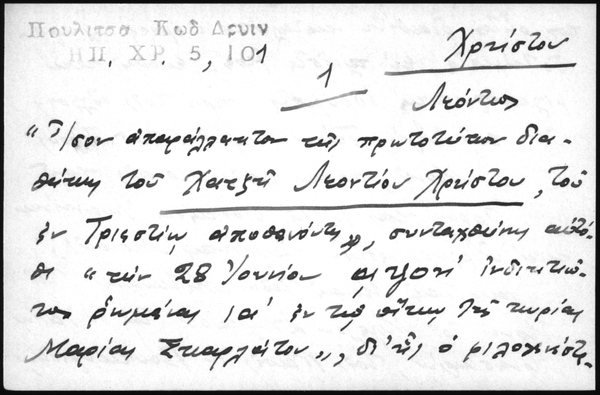 Πουλιτσα Κωδ Δρυιν
ΗΠ. ΧΡ. 5, 101
Χρήστου
1
Λεόντιος
"Ἴσον ἀπαράλλακτον τῆς πρωτοτύπου δια-
θήκης τοῦ Χατζῆ Λεοντίου Χρήστου, τοῦ
ἐν Τριεστίῳ ἀποθανόντος, συνταχθείσης αὐτό-
θι "τὴν 28 Ἰουνίου ἰνδικτιῶ-
νος ῥωμαίας ια' ἐν τῷ τῆς κυρίας
Μαρίας Σκαρλάτου", δι' ἧς ὁ φιλογενέστα-